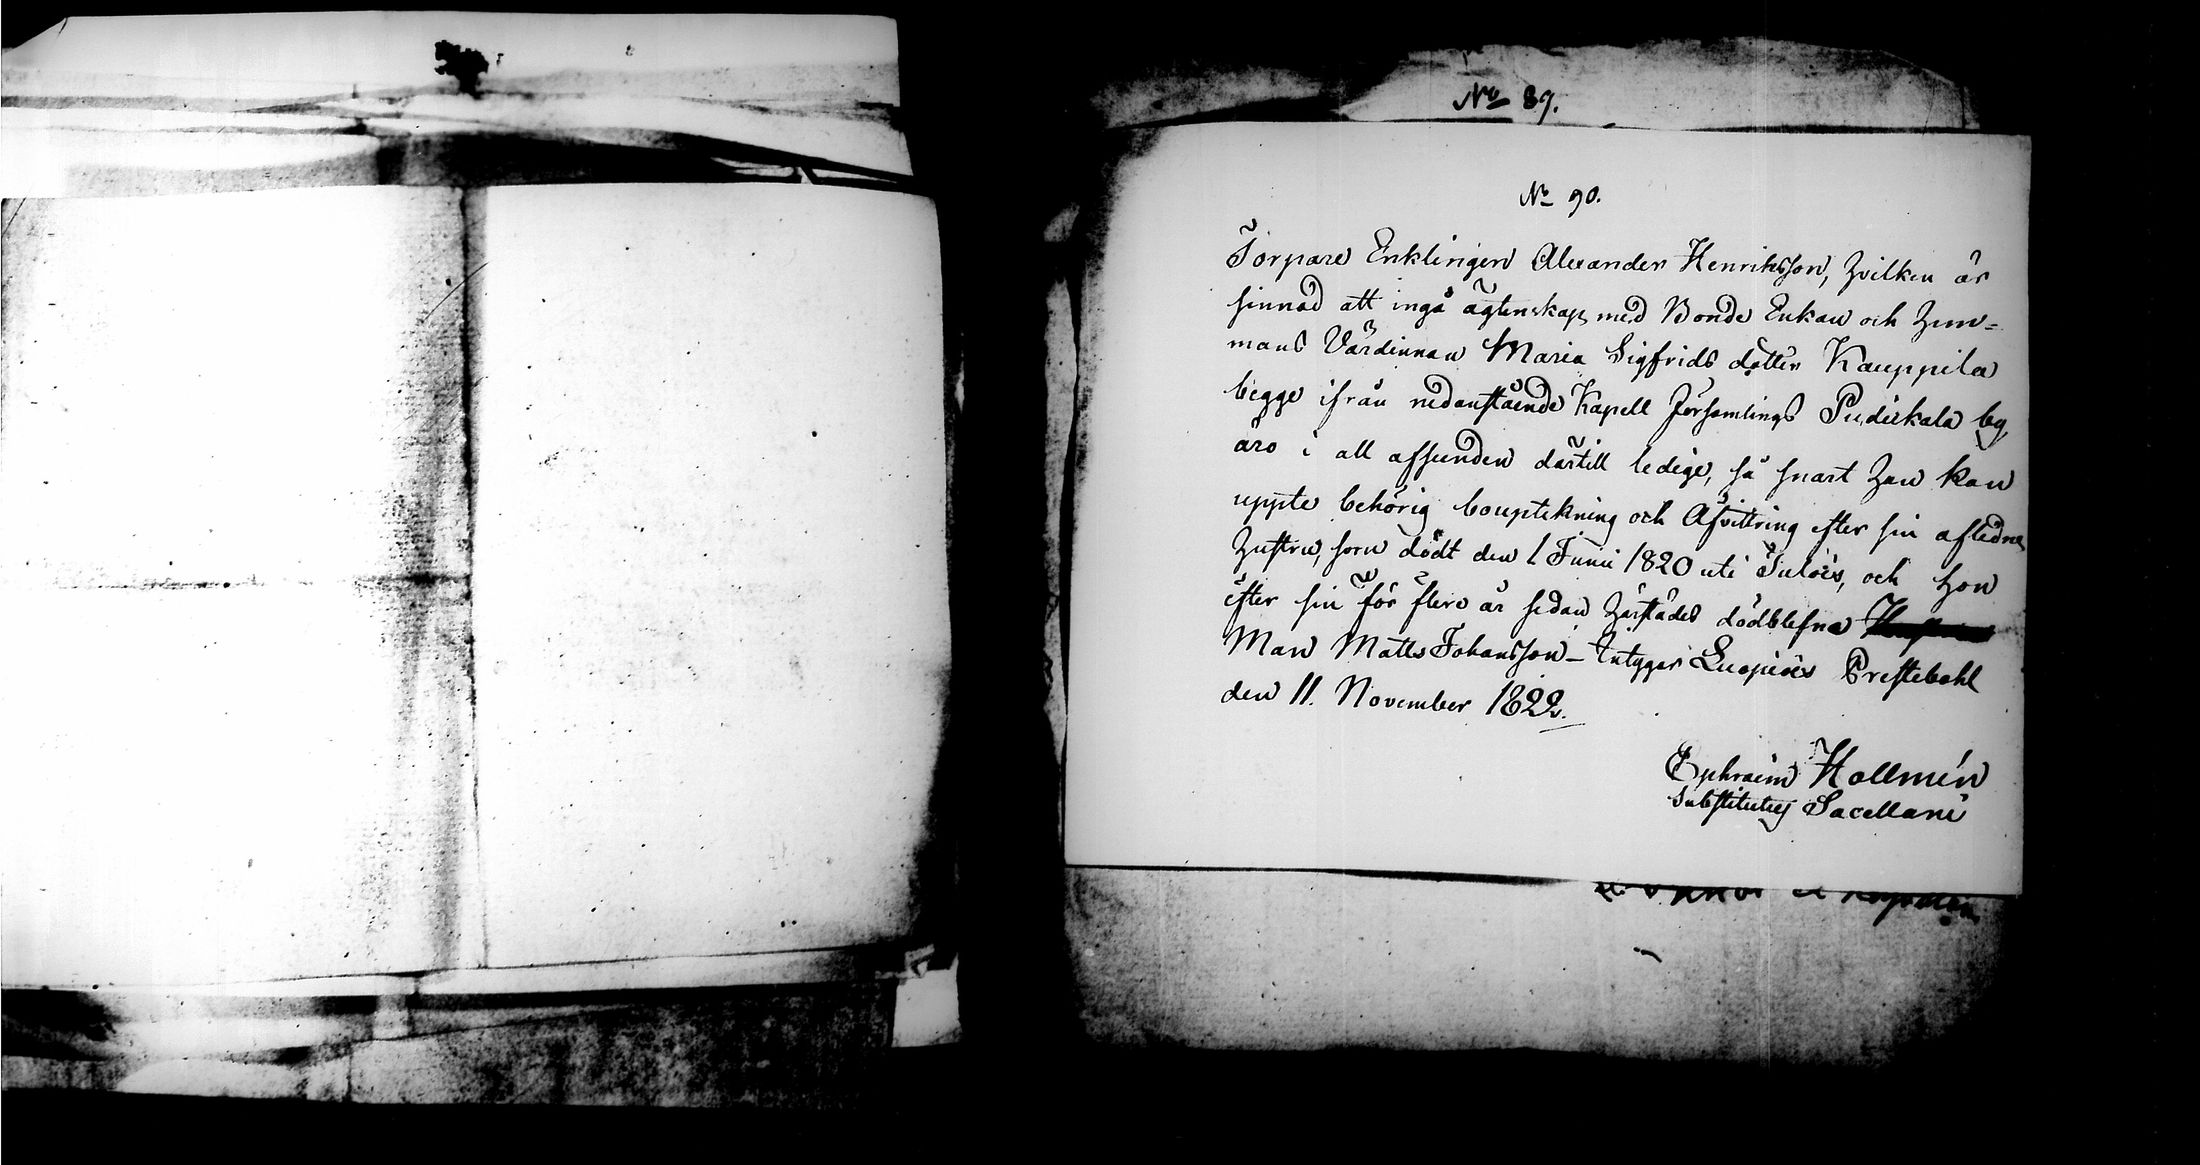 No 89.
No 90.
Torpare Enklingen Alexander Henriksson, hvilken är
sinnad att ingå ägtenskap med Bonde Enkan och Hem=
mans Värdinnan Maria Sigfrids dotter Kauppila
begge ifrån nedanstående Kapell Församlings Puduskala by,
äro i all afseenden därtill ledige, så snart han kan
uppte behörig bouptekning och Afvittring efter sin aflidne
hustru, som dödt den 1 Junii 1820 uti Tulois, och hon
efter sin för flere år sedan härstädes dödblefne
Man Matts Johansson – Intygar Luopiois Prestebohl
den 11. November 1822.
Ephraim Hollmén
Substitutus Sacellani